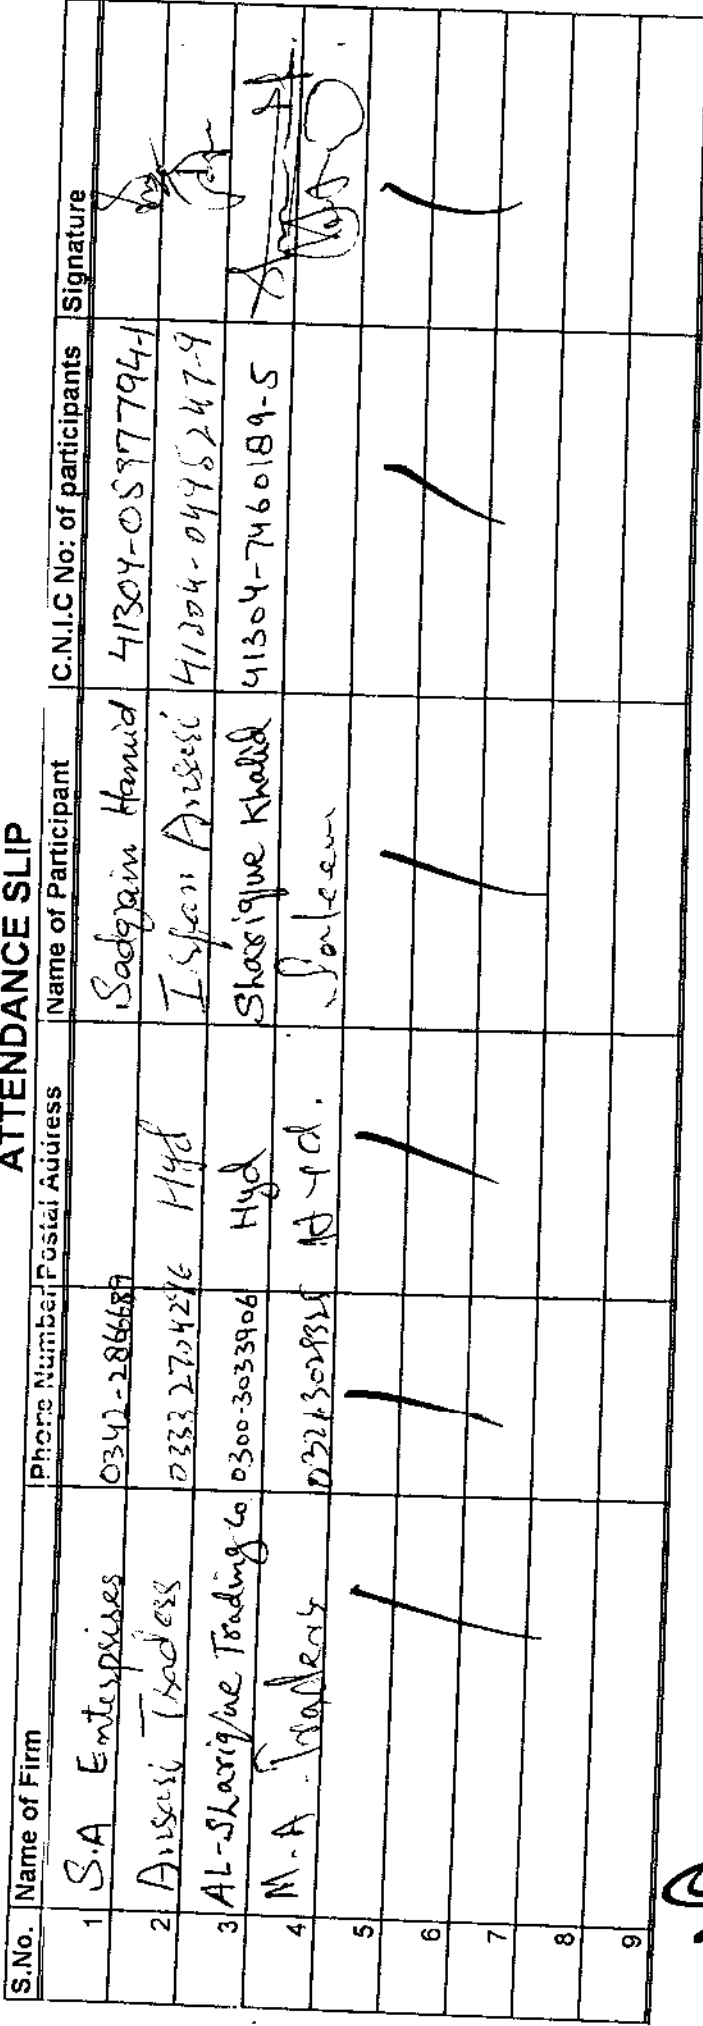 ATTENDANCE SLIP
S.No. Name of Firm Phone Number Postal Address Name of Participant C.N.I.C No: of participants Signature
1 S.A Enterprises 0342-2866689 Sadqain Hamid 41304-0537794-1
2 Ansari Traders 0333 2704296 Hyd Irfan Ansari 41304-0495247-9
3 AL-Sharique Trading Co 0300-3033906 Hyd Sharique Khalid 41304-7460189-5
4 M.A. Traders Hyd.
5
6
7
8
9